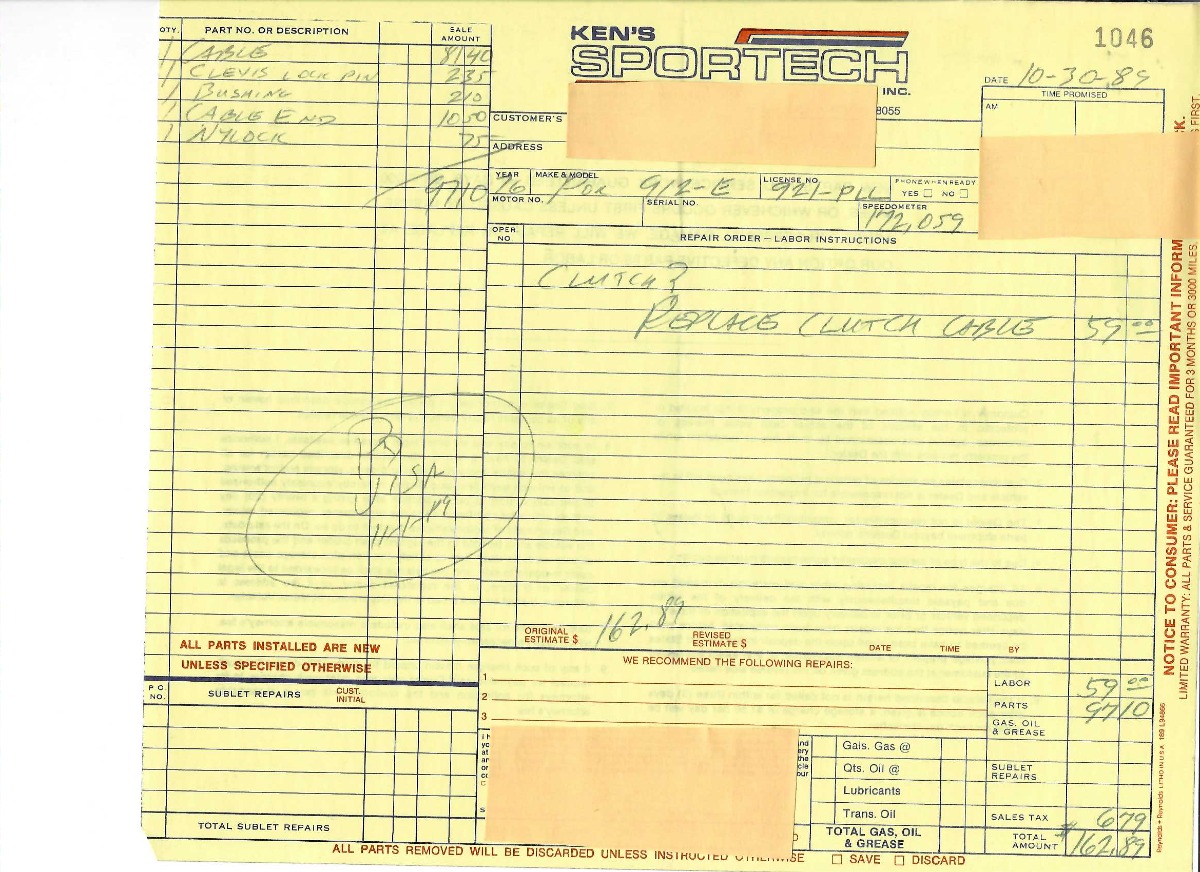 KEN'S
SPORTECH
INC.
1046
8055
DATE 10-30-89
TIME PROMISED
AM
QTY. PART NO. OR DESCRIPTION SALE AMOUNT
1 CABLE 8140
1 CLEVIS LOCK PIN 235
1 BUSHING 210
1 CABLE END 1050
1 NYLOCK 75
9710
CUSTOMER'S
ADDRESS
YEAR 76 MAKE & MODEL POR 912-E LICENSE NO. 921-PLL PHONE WHEN READY YES NO
MOTOR NO. SERIAL NO. SPEEDOMETER 172,059
OPER. NO. REPAIR ORDER – LABOR INSTRUCTIONS
CLUTCH?
REPLACE CLUTCH CABLE 59 00
PD
VISA
11-1-89
ORIGINAL ESTIMATE $ 162.89 REVISED ESTIMATE $ DATE TIME BY
ALL PARTS INSTALLED ARE NEW
UNLESS SPECIFIED OTHERWISE
P.O. NO. SUBLET REPAIRS CUST. INITIAL
TOTAL SUBLET REPAIRS
WE RECOMMEND THE FOLLOWING REPAIRS:
1
2
3
LABOR 59 00
PARTS 9710
GAS, OIL & GREASE
SUBLET REPAIRS
SALES TAX 679
TOTAL AMOUNT $162.89
Gals. Gas @
Qts. Oil @
Lubricants
Trans. Oil
TOTAL GAS, OIL & GREASE
ALL PARTS REMOVED WILL BE DISCARDED UNLESS INSTRUCTED OTHERWISE SAVE DISCARD
NOTICE TO CONSUMER: PLEASE READ IMPORTANT INFORM
LIMITED WARRANTY: ALL PARTS & SERVICE GUARANTEED FOR 3 MONTHS OR 3000 MILES.
K.
S FIRST.
Reynolds + Reynolds LITHO IN U.S.A. 189 L94866